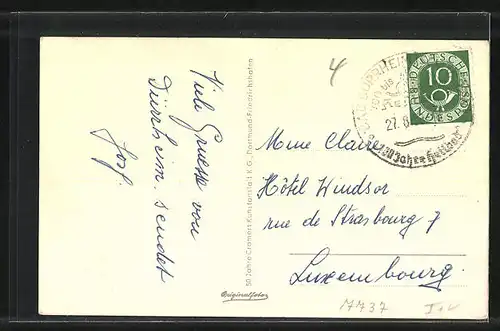 Viele Gruesse von
Dürrheim sendet
Josf.
50 Jahre Cramers Kunstanstalt K.G., Dortmund-Friedrichshafen
Originalfoto
4
27.8
Heilbad
DEUTSCHE
10
BUNDESPOST
Mme Claire
Hôtel Windsor
rue de Strasbourg 7
Luxembourg.
7737